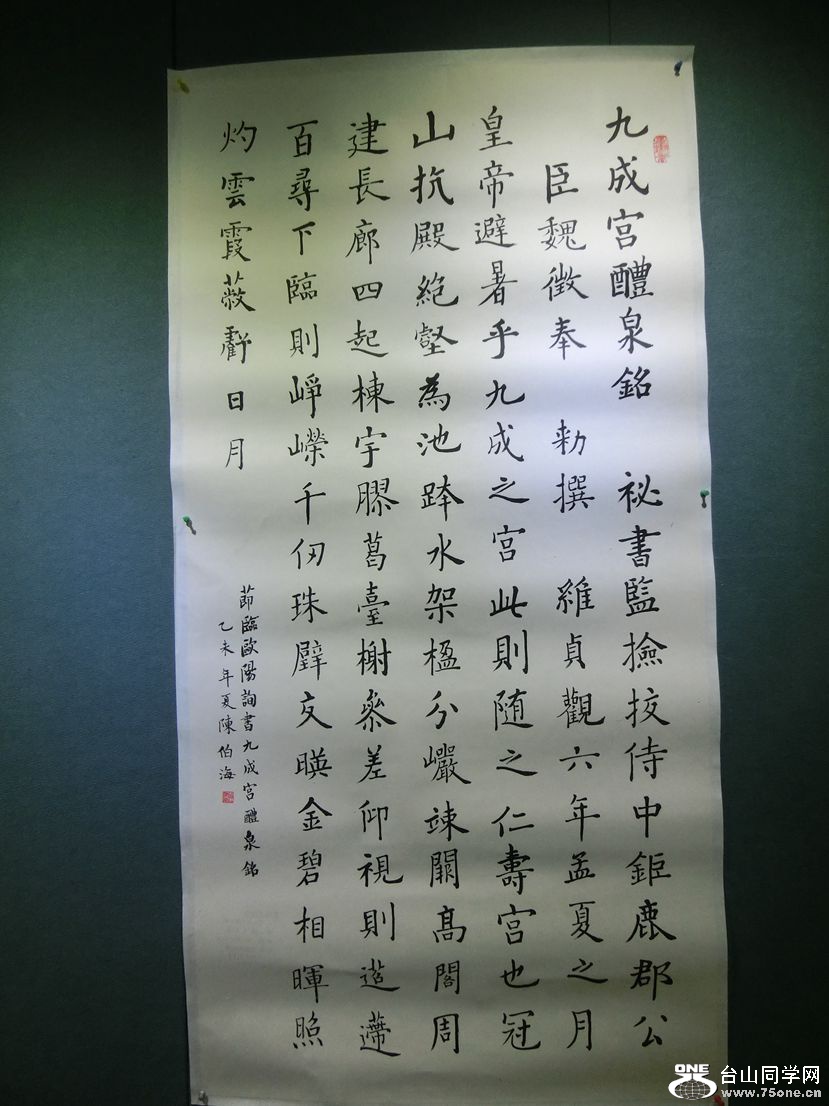 九成宫醴泉銘 祕書監撿挍侍中鉅鹿郡公
臣魏徵奉 勑撰 維貞觀六年孟夏之月
皇帝避暑乎九成之宫此則随之仁壽宫也冠
山抗殿絶壑為池跨水架楹分巖竦闕高閣周
建長廊四起棟宇膠葛臺榭參差仰視則迢遰
百尋下臨則崢嶸千仞珠壁交暎金碧相暉照
灼雲霞蔽虧日月
節臨歐陽詢書九成宫醴泉銘
乙未年夏陳伯海
ONE 台山同学网
www.75one.cn